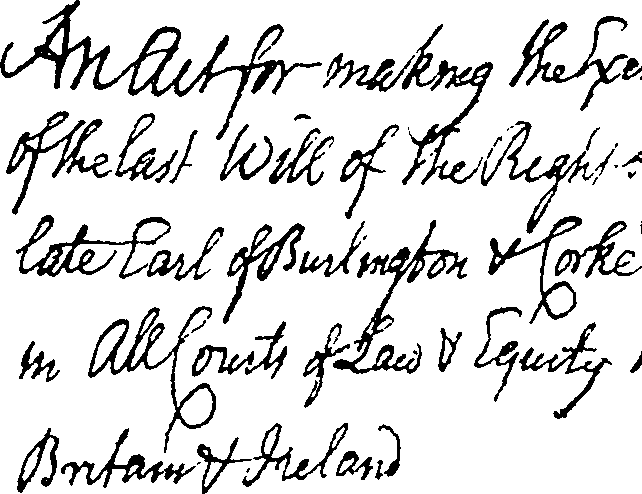 An Act for making the Exe
of the last Will of the Right
late Earl of Burlington & Corke
in All Courts of Law & Equity
Britain & Ireland